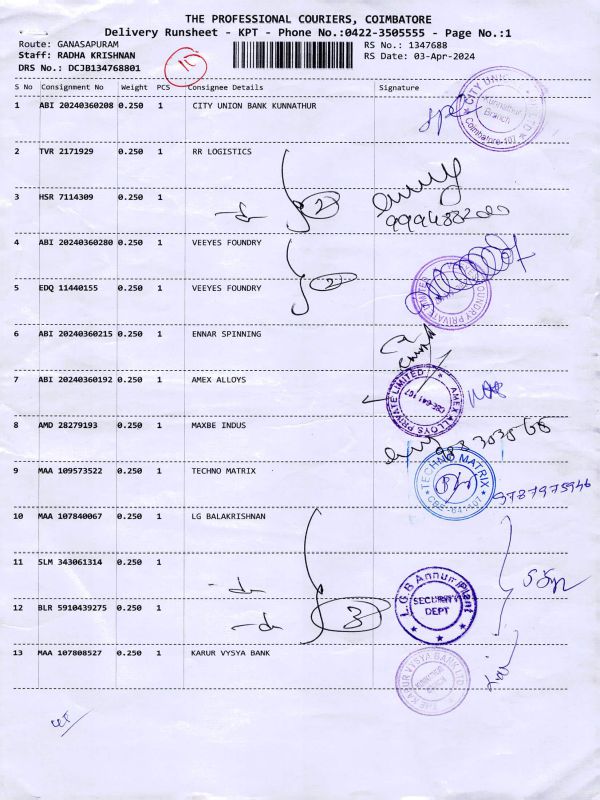 THE PROFESSIONAL COURIERS, COIMBATORE
Delivery Runsheet - KPT - Phone No.:0422-3505555 - Page No.:1
Route: GANASAPURAM
RS No.: 1347688
Staff: RADHA KRISHNAN
RS Date: 03-Apr-2024
DRS No.: DCJB134768801
S No Consignment No Weight PCS Consignee Details Signature
1 ABI 20240360208 0.250 1 CITY UNION BANK KUNNATHUR
CITY UNION Kunnathur Branch Coimbatore-107
2 TVR 2171929 0.250 1 RR LOGISTICS
3 HSR 7114309 0.250 1
2
4 ABI 20240360280 0.250 1 VEEYES FOUNDRY
5 EDQ 11440155 0.250 1 VEEYES FOUNDRY
2
FOUNDRY PRIVATE LIMITED
6 ABI 20240360215 0.250 1 ENNAR SPINNING
7 ABI 20240360192 0.250 1 AMEX ALLOYS
AMEX ALLOYS PRIVATE LIMITED CBE-641 107
8 AMD 28279193 0.250 1 MAXBE INDUS
9 MAA 109573522 0.250 1 TECHNO MATRIX
TECHNO MATRIX CBE-641 107
9787975946
10 MAA 107840067 0.250 1 LG BALAKRISHNAN
11 SLM 343061314 0.250 1
12 BLR 5910439275 0.250 1
3
L.G.B Annur Plant SECURITY DEPT
13 MAA 107808527 0.250 1 KARUR VYSYA BANK
THE KARUR VYSYA BANK LTD KUNNATHUR BRANCH